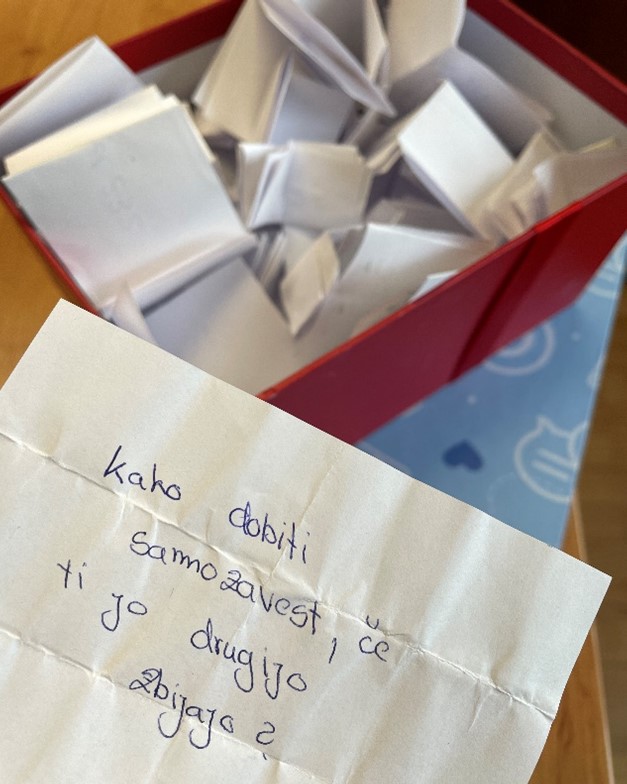 kako dobiti
samozavest, če
ti jo drugijo
zbijajo?